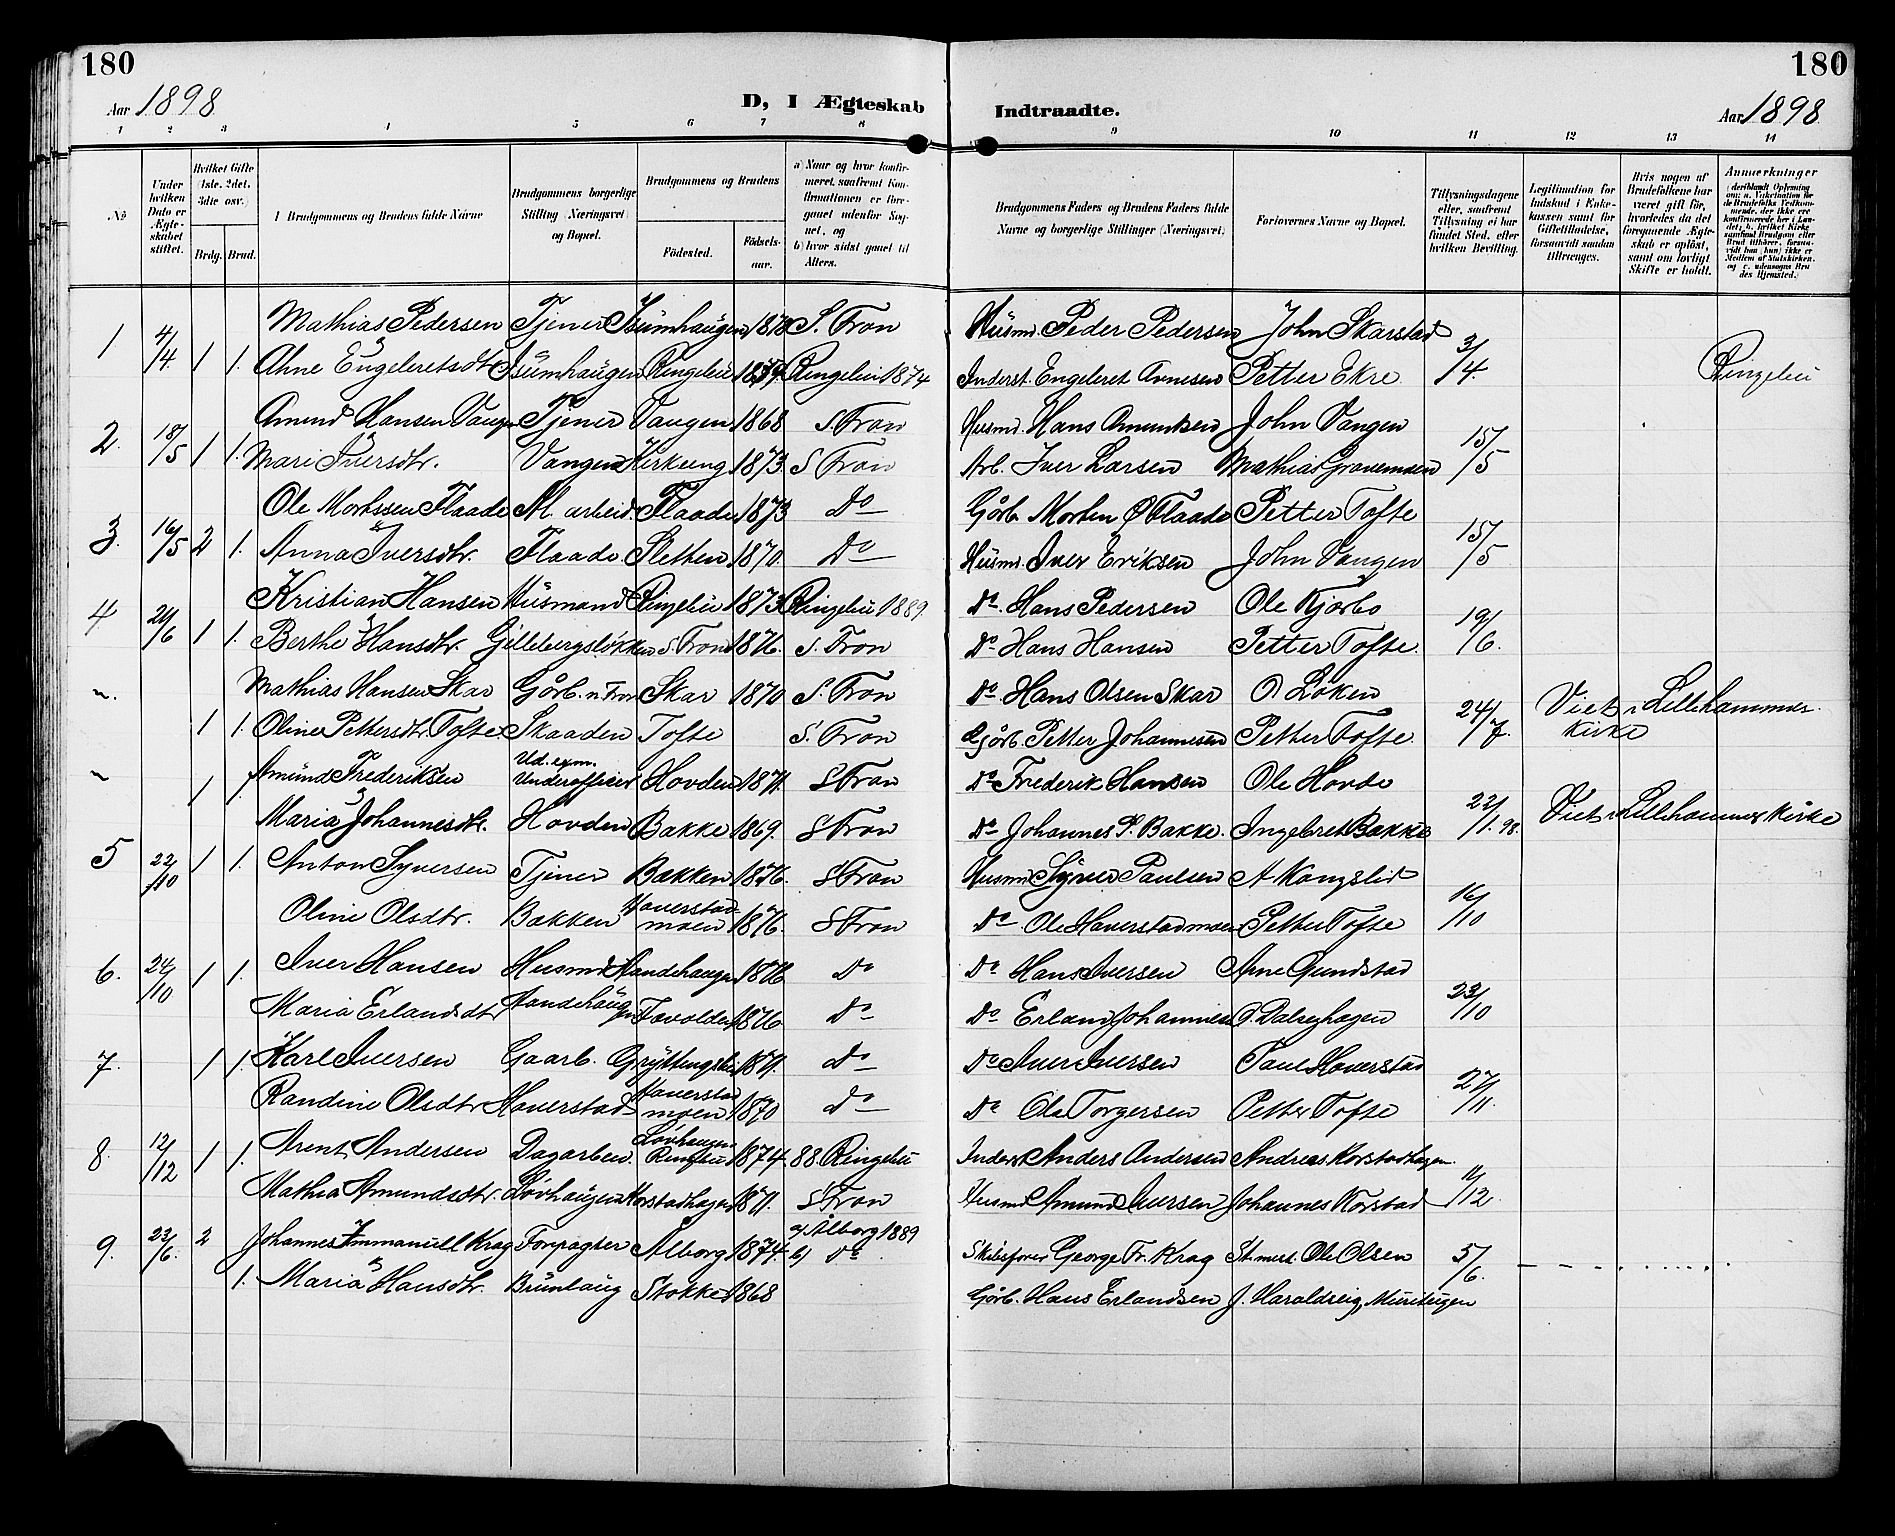 180
180
Aar 1898
D, I Ægteskab Indtraadte.
Aar 1898
1 2 3 4 5 6 7 8 9 10 11 12 13 14
№
Under hvilken Dato er Ægteskabet stiftet.
Hvilket Gifte (1ste, 2det, 3dte osv.)
Brdg. Brud.
Brudgommens og Brudens fulde Navne
Brudgommens borgerlige Stilling (Næringsvei) og Bopæl.
Brudgommens og Brudens
Fødested.
Fødselsaar.
a) Naar og hvor konfirmeret, saafremt Konfirmationen er foregaaet udenfor Sognet, og
b) hvor sidst gaaet til Alters.
Brudgommens Faders og Brudens Faders fulde Navne og borgerlige Stillinger (Næringsvei)
Forlovernes Navne og Bopæl.
Tillysningsdagene eller, saafremt Tillysning ei har fundet Sted, efter hvilken Bevilling.
Legitimation for Indskud i Enkekassen samt for Giftetilladelse, forsaavidt saadan tiltrænges.
Hvis nogen af Brudefolkene har været gift før, hvorledes da det foregaaende Ægteskab er opløst, samt om lovligt Skifte er holdt.
Anmærkninger
1 4/4 1 1. Mathias Pedersen Tjener Isumhaugen 1870 S. Fron Husmd. Peder Pedersen John Skarstad 3/4.
Ahne Engeleretsdt Isumhaugen Ringebu 1859. Ringebu 1874 Inderst. Engeleret Arnesen Petter Ekre. Ringebu
2. 18/5 1 1. Amund Hansen Vangen Tjener Vangen 1868 S. Fron Husmd. Hans Amundsen John Vangen 15/5
Mari Iversdtr. Vangen Kirkeeng 1873. S Fron Arb. Iver Larsen Mathias Gravemoen
3. 16/5 2 1. Ole Mortssen Flaade Al. arbeid. Flaade 1873 Do Gårb. Morten Ø Flaade Petter Tofte 15/5
Anna Iversdtr. Flaade Sletten 1870. Do Husmd. Iver Eriksen John Vangen
4 20/6 1 1. Kristian Hansen Husmand Ringebu 1873 Ringebu 1889 Do. Hans Pedersen Ole Kjorbo 19/6.
Berthe Hansdtr. Gillebergsløkken S. Fron 1876. S. Fron Do Hans Hansen Petter Tofte.
" 1 1. Mathias Hansen Skar Gårb. n. Fron Skar 1870 S. Fron Do Hans Olsen Skar O Løken 24/7. Viet i Lillehammer kirke
Oline Pettersdtr Tofte. Skaaden Tofte S. Fron Gårb. Petter Johannesen Petter Tofte.
" 1 1. Amund Frederiksen Ud. exm. Underofficer Hovden 1871. S Fron Do Frederik Hansen Ole Hovde 22/1. 98. Viet i Lillehammer kirke
Maria Johannesdtr. Hovden Bakke 1869. S Fron Do Johannes P. Bakke. Ingeleret Bakke
5 22/10 1 1. Anton Syversen Tjener Bakken 1876. S Fron Husmd Syver Paulsen A Kongslid 16/10
Oline Olsdtr. Bakken Haverstadmoen 1876. S Fron Do Ole Haverstadmoen Petter Tofte
6. 24/10 1 1. Iver Hansen Husmd Aandehaugen 1876 Do Do Hans Iversen Arne Gundstad 23/10
Maria Erlandsdtr Aandehaugen 1876 Do Do Erland Johannes O. Dalseghagen
7. 1 1. Karl Iversen Gaarb. Gryttingslien 1871. Do Do Iver Iversen Paul Haverstad 27/11.
Randine Olsdtr Haverstad Haverstadmoen 1870 Do Do Ole Torgersen Petter Tofte
8. 12/12 1 1. Arent Andersen Dagarbeid. Løvhaugen Ringebu 1874. 88 Ringebu Inderst Anders Andersen Andreas Korstadhagen 11/12.
Mathea Amundsdtr. Løvhaugen Korstadhagen 1871. S Fron Husmd Amund Iversen Johannes Korstad
9. 22/6. 2 1. Johannes Immanuell Krag Forpagter Ålborg 1874. a) Ålborg 1889 b) Do Skibsfører George Fr. Krag St.mest. Ole Olsen 5/6.
Maria Hansdtr. Brunlaug Stokke 1868 Gårb. Hans Erlandsen J. Haraldseig,